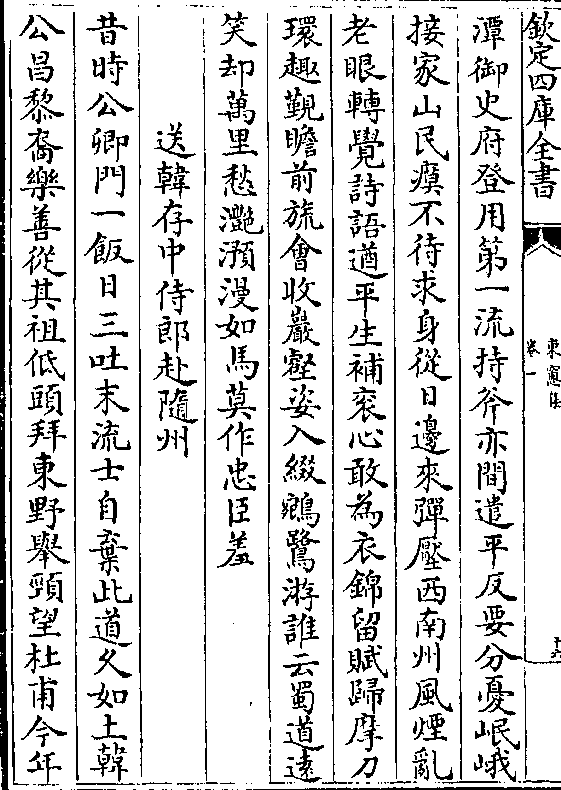 欽定四庫全書
東窻集
卷一
潭御史府登用第一流持斧亦間遣平反要分憂岷峨
接家山民瘼不待求身從日邊來彈壓西南州風煙亂
老眼轉覺詩語遒平生補衮心敢為衣錦留賦歸摩刀
環趣覲瞻前旒會收巖壑姿入綴鵷鷺游誰云蜀道逺
笑却萬里愁灔澦漫如馬莫作忠臣羞
送韓存中侍郎赴隨州
昔時公卿門一飯日三吐末流士自棄此道久如土韓
公昌黎裔樂善從其祖低頭拜東野舉頸望杜甫今年